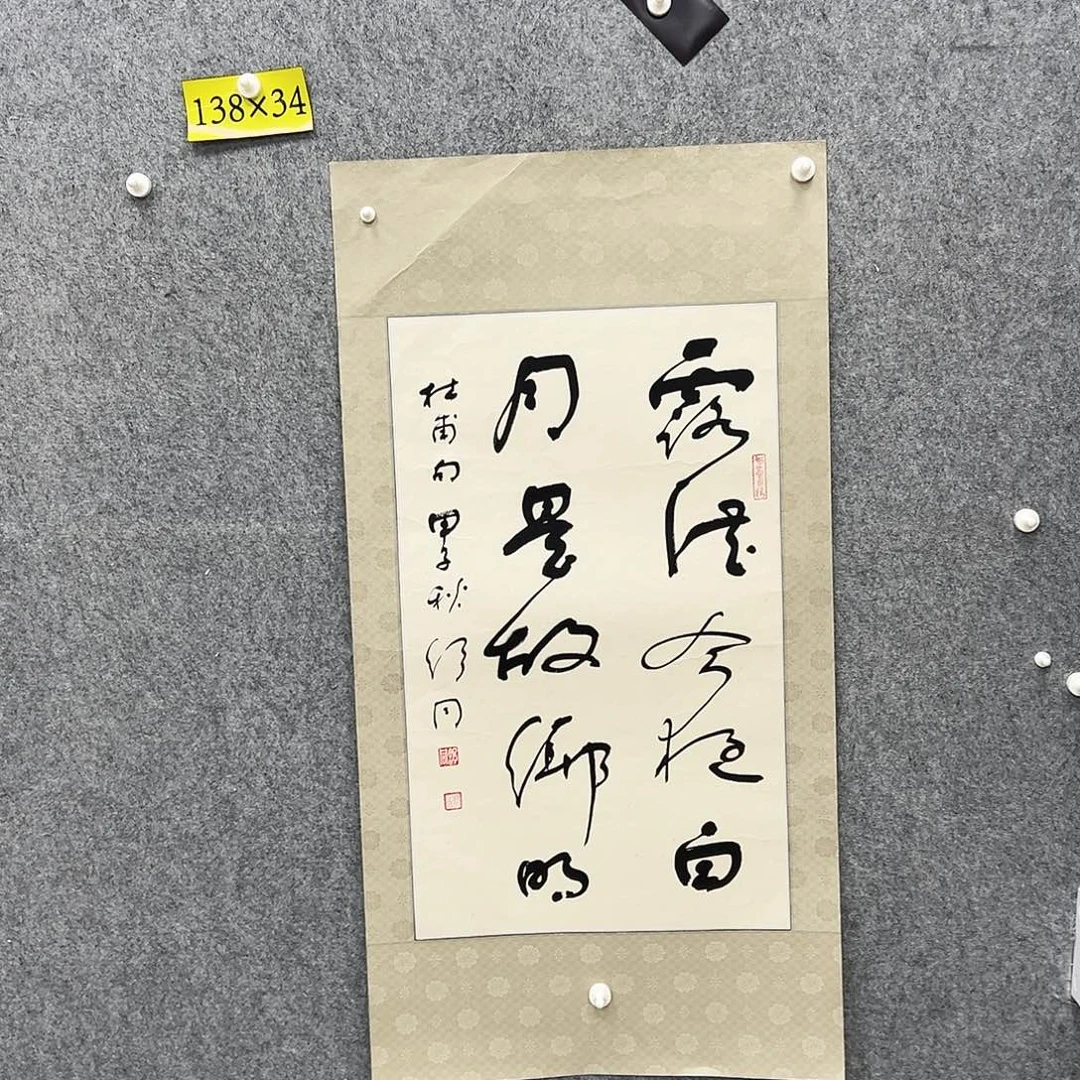 138×34
露從今夜白
月是故鄉明
杜甫句 甲子秋 舒同